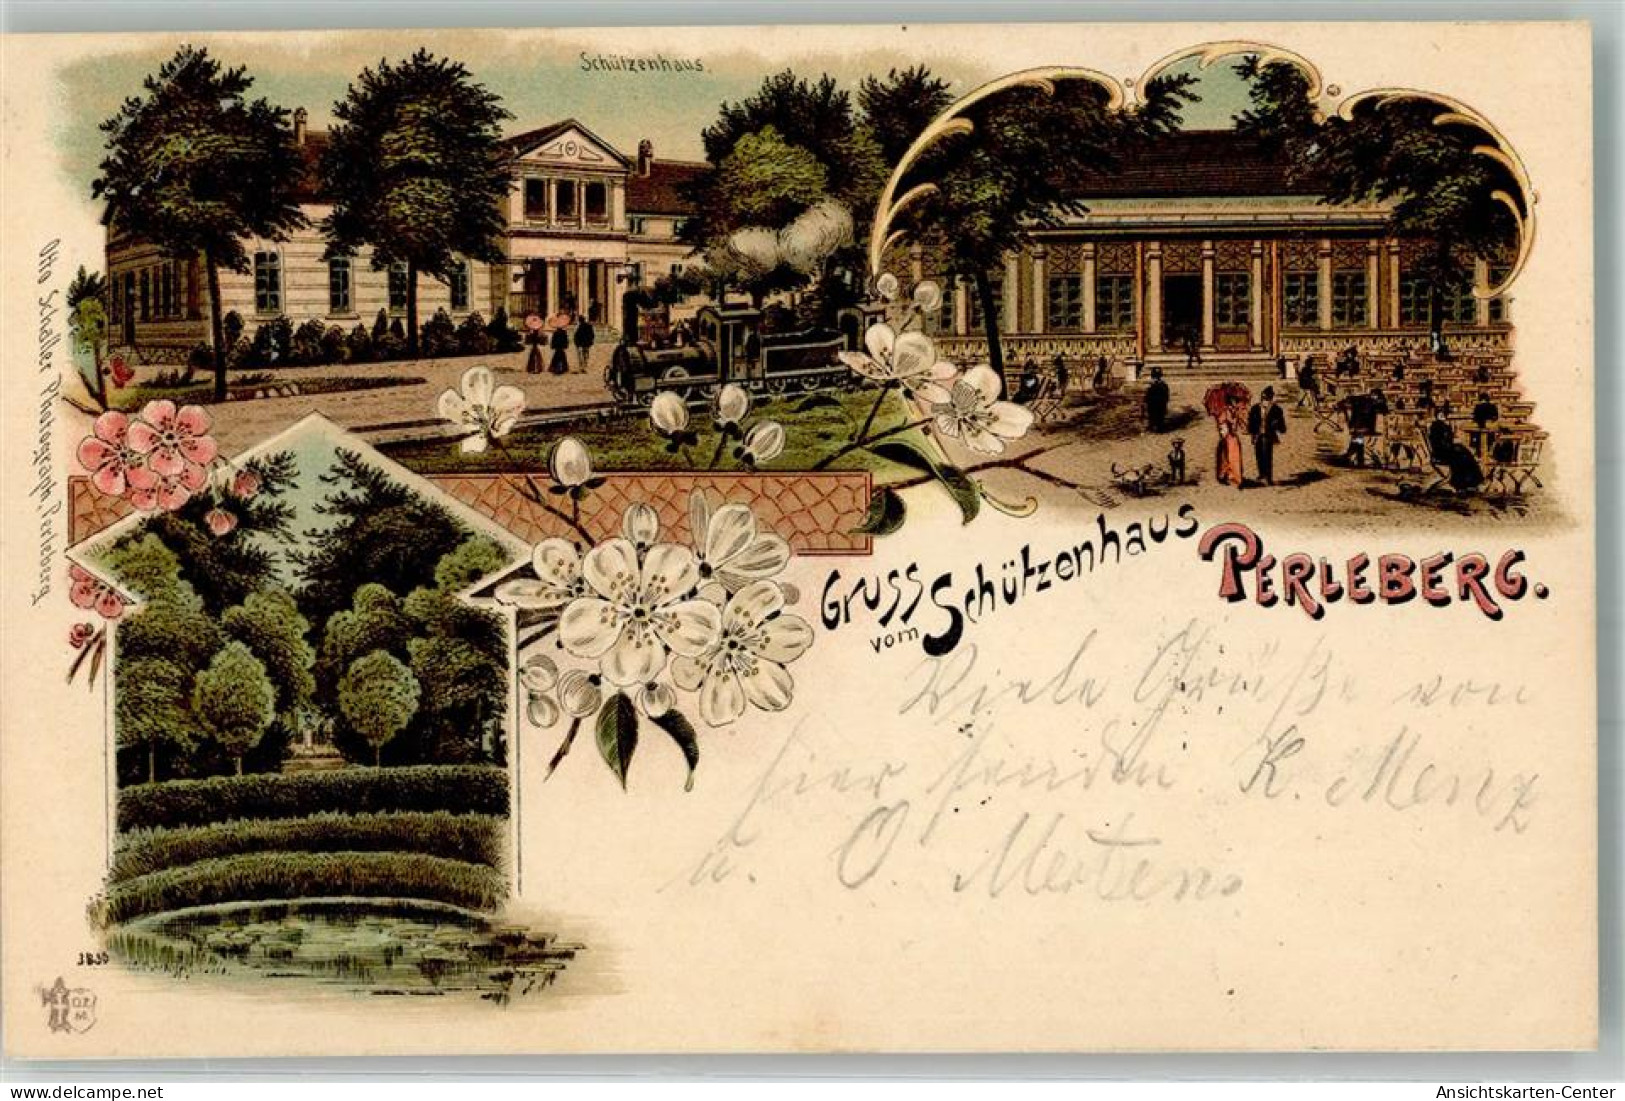 Schützenhaus.
Otto Schaller Photograph, Perleberg
Gruss
vom Schützenhaus
PERLEBERG.
Viele Grüße von
hier senden K. Menz
u. O. Mertens
3830
Ansichtskarten-Center